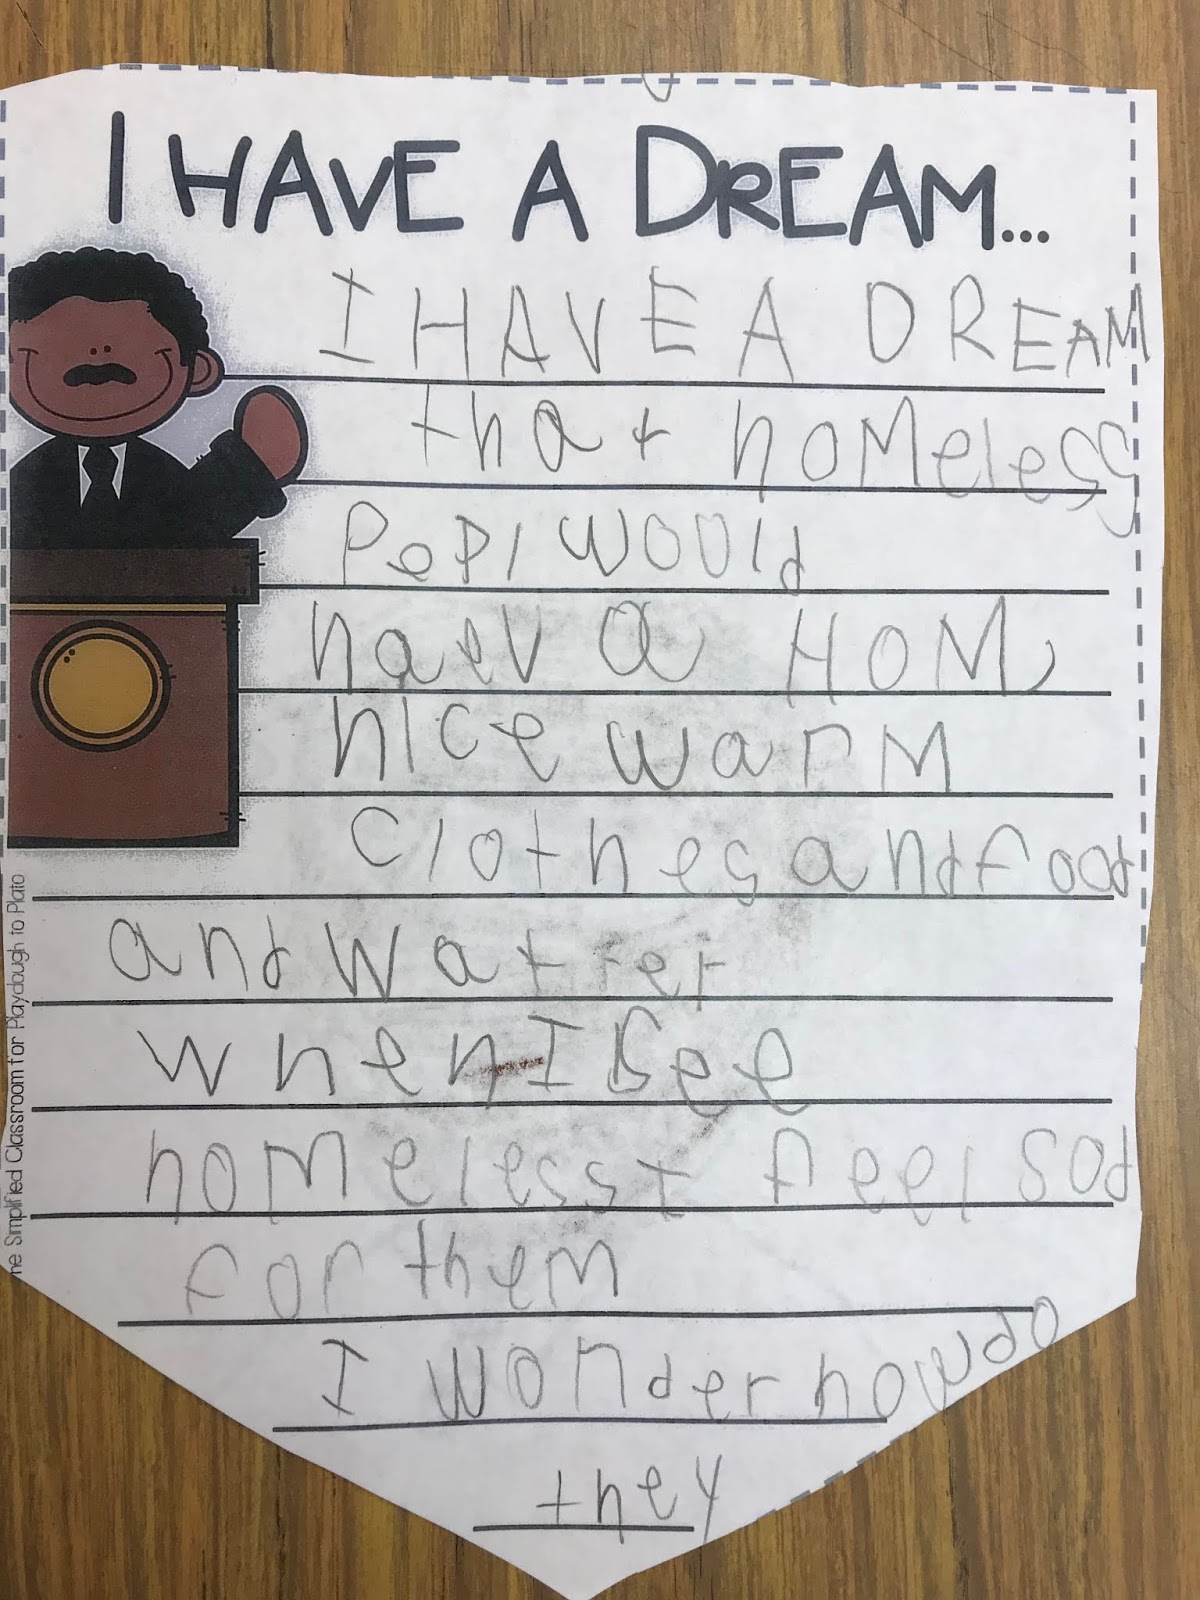 I HAVE A DREAM...
I HAVE A DREAM
that homeless
Pepl would
haev a HOM,
nice warm
clothes and food
and watter
when I see
homeless I feel sad
for them
I wonder how do
they
he Simplified Classroom for Playdough to Plato